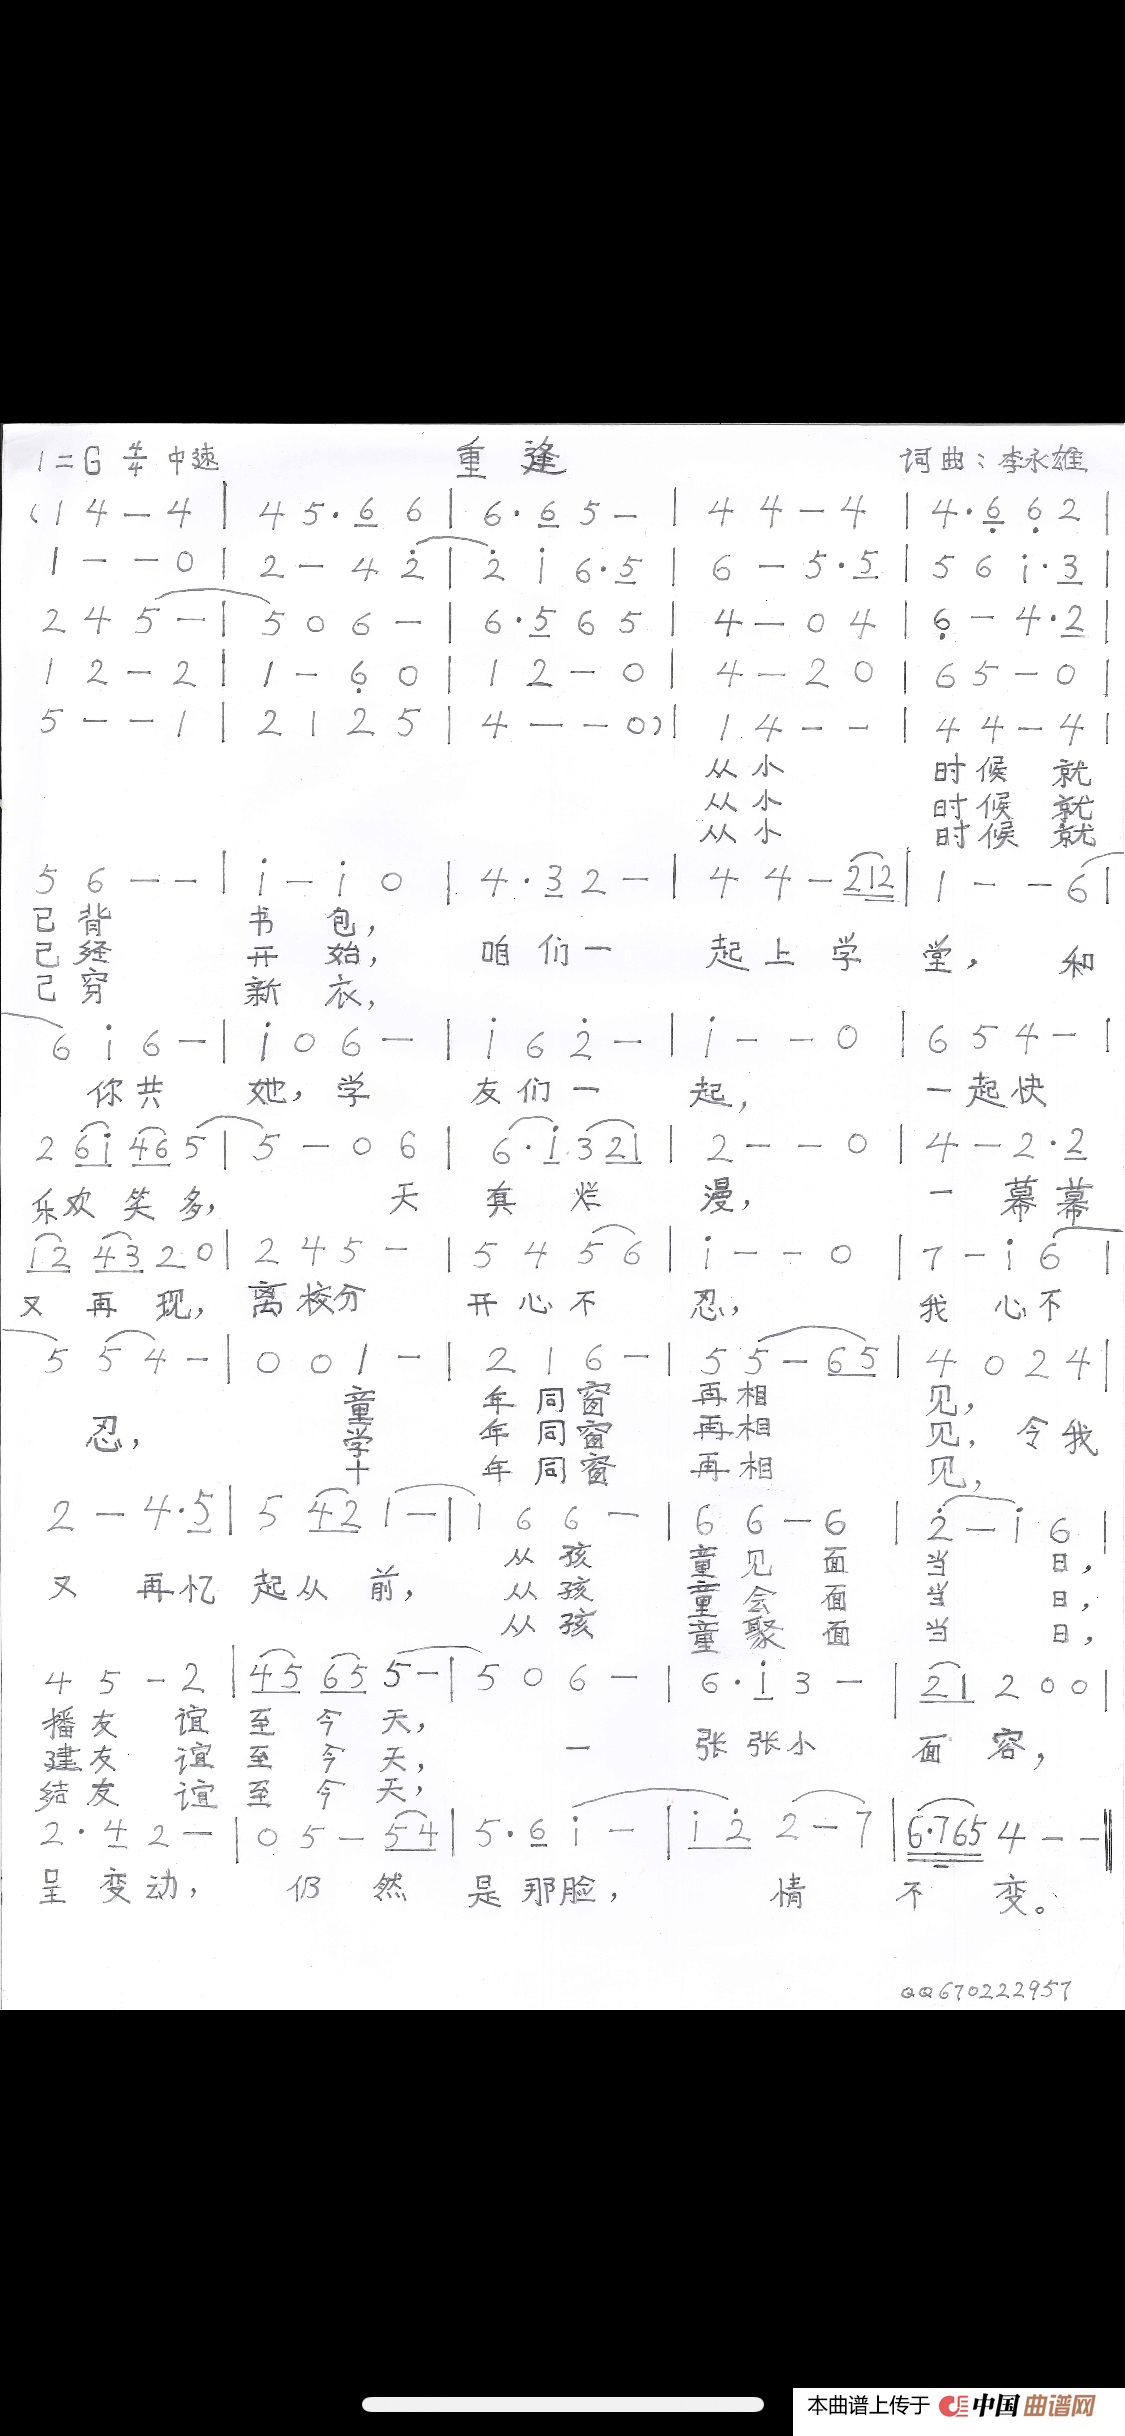 1=G 4/4 中速 重逢 词曲：李永雄
(1 4 — 4 | 4 5·6 6 | 6·6 5 — | 4 4 — 4 | 4·6̣ 6̣ 2 |
1 — — 0 | 2 — 4 2̇ | 2̇ 1̇ 6·5 | 6 — 5·5 | 5 6 1̇·3 |
2 4 5 — | 5 0 6 — | 6·5 6 5 | 4 — 0 4 | 6̣ — 4·2 |
1 2 — 2 | 1 — 6̣ 0 | 1 2 — 0 | 4 — 2 0 | 6 5 — 0 |
5 — — 1 | 2 1 2 5 | 4 — — 0) | 1 4 — — | 4 4 — 4 |
从小 时候 就
从小 时候 就
从小 时候 就
5 6 — — | 1̇ — 1̇ 0 | 4·3 2 — | 4 4 — 212 | 1 — — 6 |
已背 书 包，
已经 开 始， 咱们一 起上学 堂， 和
已穿 新 衣，
6 1̇ 6 — | 1̇ 0 6 — | 1̇ 6 2̇ — | 1̇ — — 0 | 6 5 4 — |
你共 她，学 友们一 起， 一起快
2 61̇ 46 5 | 5 — 0 6 | 6·1̇ 3 21 | 2 — — 0 | 4 — 2·2
乐欢 笑 多， 天 真 烂 漫， 一 幕幕
12 43 2 0 | 2 4 5 — | 5 4 5 6 | 1̇ — — 0 | 7 — 1̇ 6 |
又 再 现， 离校分 开心不 忍， 我 心不
5 5 4 — | 0 0 1 — | 2 1 6 — | 5 5 — 65 | 4 0 2 4 |
童 年同窗 再相 见，
忍， 学 年同窗 再相 见，令我
十 年同窗 再相 见，
2 — 4·5 | 5 42 1 — | 1 6 6 — | 6 6 — 6 | 2̇ — 1̇ 6 |
从孩 童见 面 当 日，
又 再忆 起从 前， 从孩 童会 面 当 日，
从孩 童聚 面 当 日，
4 5 — 2 | 45 65 5 — | 5 0 6 — | 6·1̇ 3 — | 21 2 0 0 |
播友 谊 至 今 天，
建友 谊 至 今 天， 一 张张小 面 容，
结友 谊 至 今 天，
2·4 2 — | 0 5 — 54 | 5·6 1̇ — | 1̇ 2̇ 2 — 7 | 6·765 4 — — ‖
呈 变动， 仍 然 是那脸， 情 不 变。
QQ670222957
本曲谱上传于 中国曲谱网